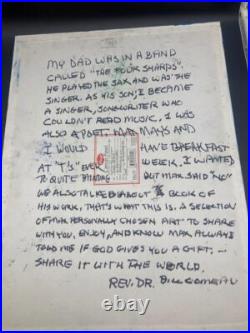 MY DAD WAS IN A BAND
CALLED "THE FOUR SHARPS"
HE PLAYED THE SAX AND WAS THE
SINGER. AS HIS SON, I BECAME
A SINGER, SONGWRITER WHO
COULDN'T READ MUSIC, I WAS
ALSO A POET. MAX MAYS AND
I WOULD HAVE BREAKFAST
AT "T'S" EVER WEEK, I WANTED
TO QUITE PAINTING BUT MAX SAID "NO"
WE ALSO TALKED ABOUT A BOOK OF
HIS WORK, THAT'S WHAT THIS IS, A SELECTION
OF MAX PERSONALLY CHOSEN ART TO SHARE
WITH YOU, ENJOY, AND KNOW MAX ALWAYS
TOLD ME IF GOD GIVES YOU A GIFT:
SHARE IT WITH THE WORLD.
REV. DR. BILL COMEAU